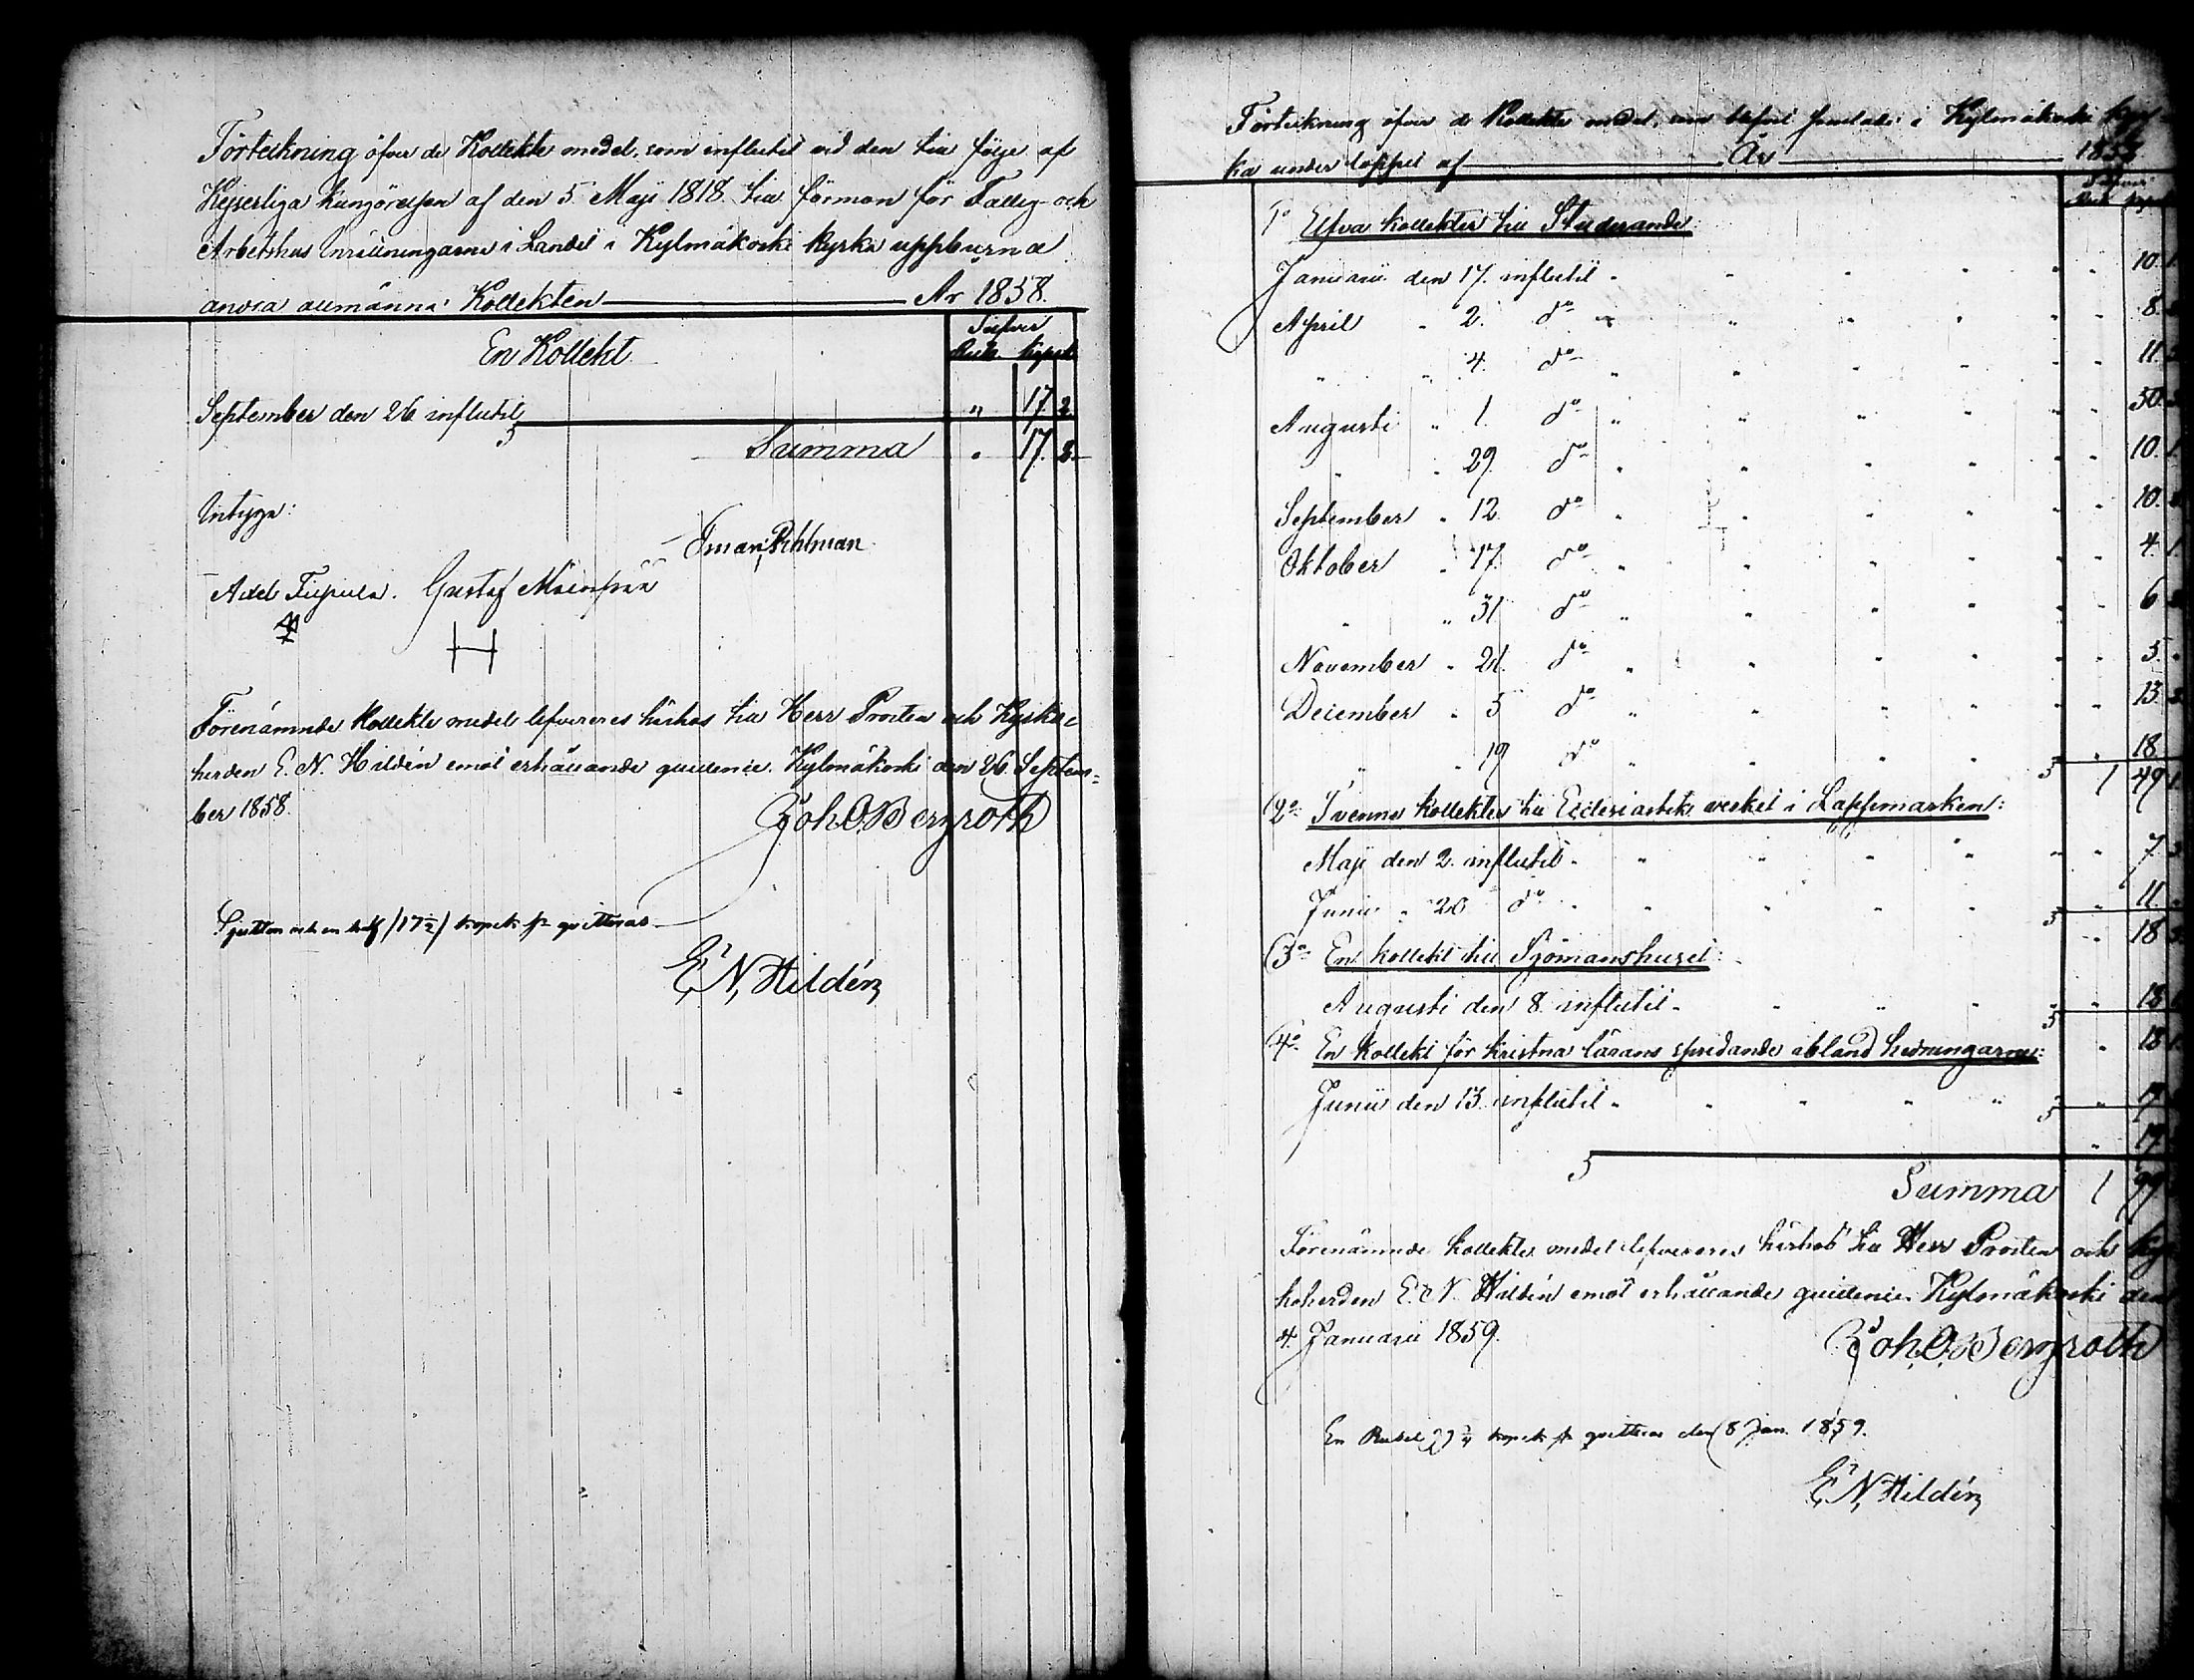 Förteckning öfver de Kollekte medel, som influtit vid den till följe af
Kejserliga Kungörelsen af den 5 Maji 1818 till förmon för Fattig- och
Arbetshus Inrättningarne i Landet i Kylmäkoski kyrka uppburna
andra allmänna Kollekten Ar 1858.
En Kollekt
Silfver
Rub. Kopek
September den 26 influtit " 17. 2.
Summa " 17. 2.
Intyga:
Axel Tiipula. Gustaf
Förenämnde Kollekte medel lefvereres härhos till Herr Prosten och Kyrko-
herden E. N. Hildén emot erhållande quittence. Kylmäkoski den 26 Septem=
ber 1858.
Joh. O. Bergroth
Sjutton och en half /17 ½/ kopek qvitteras
E. N. Hildén
Förteckning öfver de Kollekte medel, som blifvit i Kylmäkoski
ka under loppet af År 1858
Silfver
1o Elfva kollekter till Studerande:
Januarii den 17. influtit " 10. 1.
April " 2. do " 8.
" " 4. do " 11.
Augusti " 1. do " 50.
" " 29. do " 10. 1.
September " 12. do " 10.
Oktober " 17. do " 4. 1.
" " 31. do " 6
November " 21. do " 5.
December " 5 do " 13.
" " 19 do " 18
1 49
2o Tvenne Kollekter till Ecclesiastik verket i Lappmarken:
Maji den 2. influtit " 7
Junii " 20 do " 11.
" 18
3o En kollekt till Sjömanshuset:
Augusti den 8. influtit " 18
" 18
4o En Kollekt för Kristna lärans spridande ibland hedningarne:
Junii den 13. influtit "
"
Summa 1 99
Förenämnde kollekte medel lefvereres härhos till Herr Prosten och Kyr
koherden E. N. Hildén emot erhållande quittence. Kylmäkoski den
4. Januarii 1859.
Joh. O. Bergroth
En Rubel kopek qvitteras den 8 Jan. 1859.
E. N. Hildén